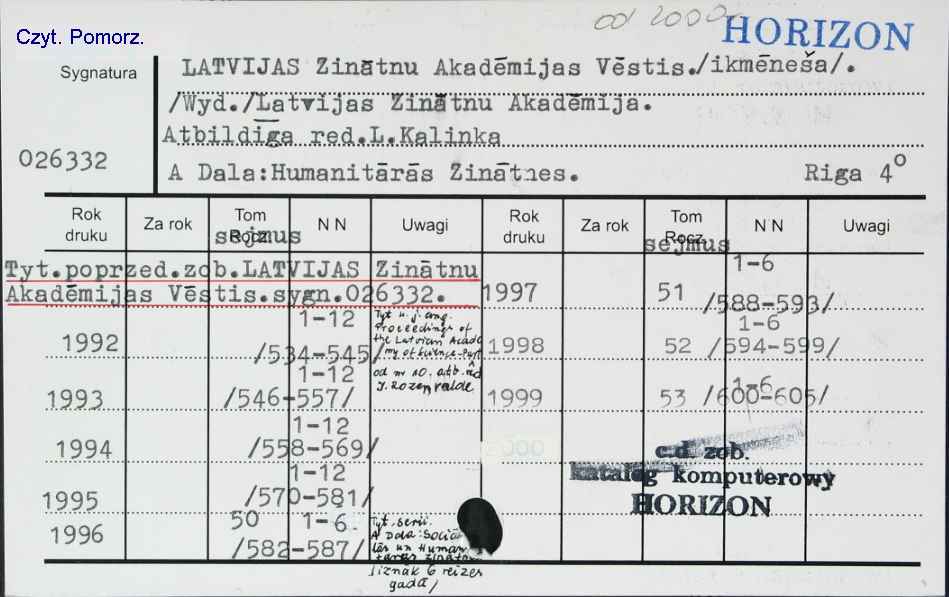 od 2000
HORIZON
Czyt. Pomorz.
Sygnatura
026332
LATVIJAS Zinātnu Akadēmijas Vēstis./ikmēneša/.
/Wyd./Latvijas Zinātnu Akadēmija.
Atbildīga red.L.Kalinka
A Dala:Humanitārās Zinātnes. Riga 4°
Rok druku Za rok Tom Rocz. N N Uwagi Rok druku Za rok Tom Rocz. N N Uwagi
sejmus sejmus
Tyt.poprzed.zob.LATVIJAS Zinātnu
Akadēmijas Vēstis.sygn.026332.
1997 51 1-6 /588-593/
1992 1-12 /534-545/
Tyt. w j. ang.
Proceedings of
the Latvian Acade
my of Science-Part
od nr 10. atb. red
J. Rozenvalde
1998 52 1-6 /594-599/
1993 1-12 /546-557/
1999 53 1-6 /600-605/
1994 1-12 /558-569/
1995 1-12 /570-581/
1996 50 1-6. /582-587/
Tyt. serii.
A Dala: Sociā
lās un Human
tārās
Iiznāk 6 reizes
gadā/
c.d. zob.
katalog komputerowy
HORIZON